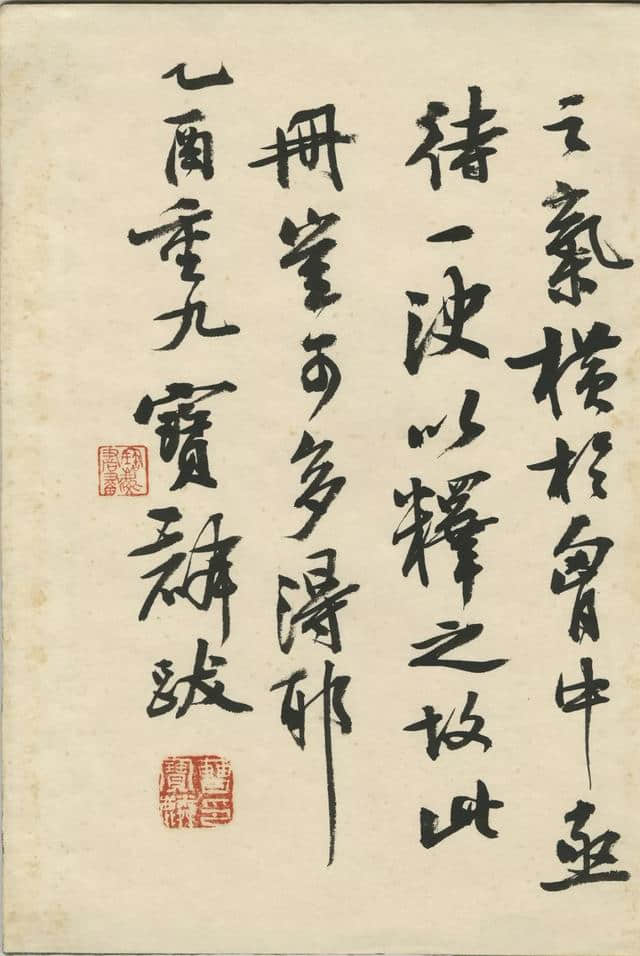 之氣橫於胷中亟
待一洩以釋之故此
冊豈可多得耶
乙酉重九寶麟跋
曹印寶麟